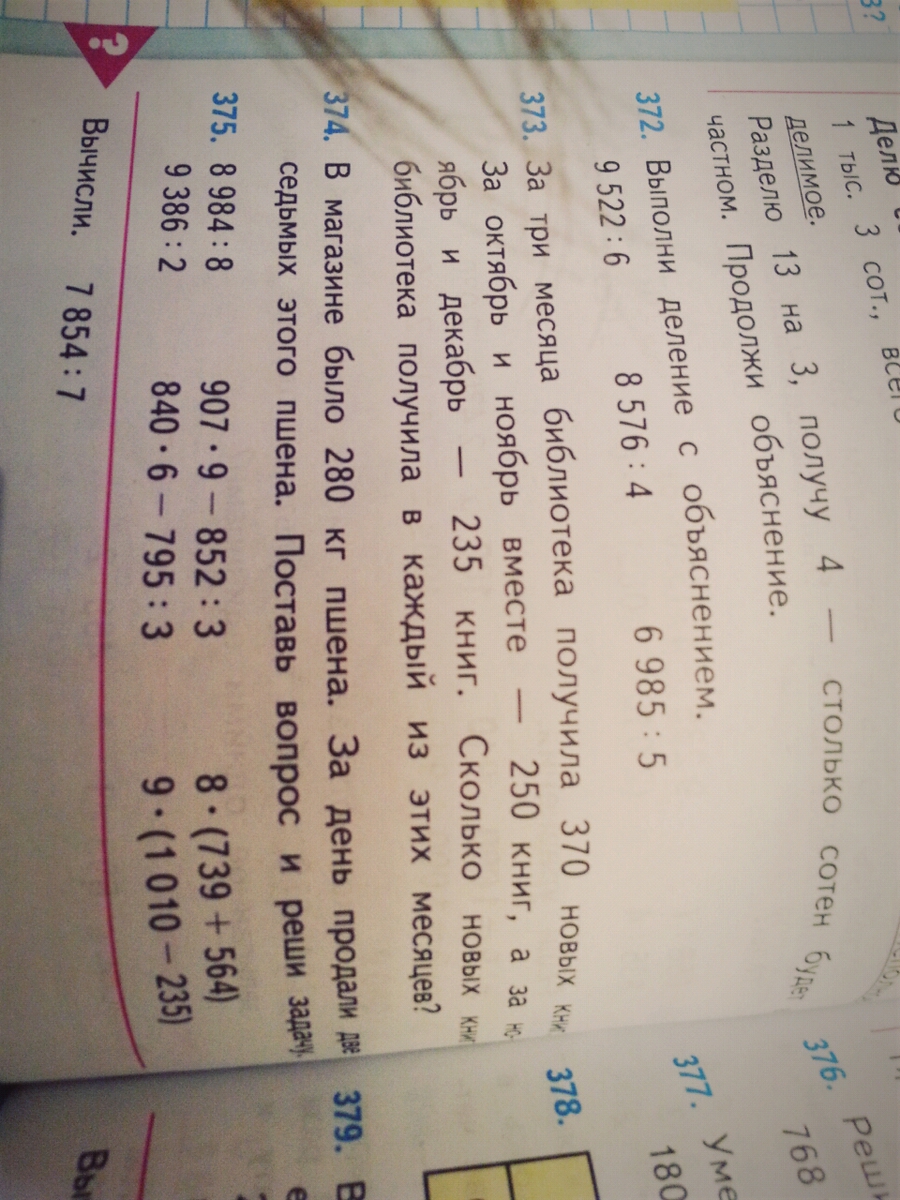 Делю
1 тыс. 3 сот., всего
делимое.
Разделю 13 на 3, получу 4 — столько сотен будет
частном. Продолжи объяснение.
372. Выполни деление с объяснением.
9 522 : 6 8 576 : 4 6 985 : 5
373. За три месяца библиотека получила 370 новых книг
За октябрь и ноябрь вместе — 250 книг, а за но-
ябрь и декабрь — 235 книг. Сколько новых книг
библиотека получила в каждый из этих месяцев?
374. В магазине было 280 кг пшена. За день продали две
седьмых этого пшена. Поставь вопрос и реши задачу.
375. 8 984 : 8 907 · 9 – 852 : 3 8 · (739 + 564)
9 386 : 2 840 · 6 – 795 : 3 9 · (1 010 – 235)
? Вычисли. 7 854 : 7
376. Реши
768
377. Уме
180
378.
379. В
Вы